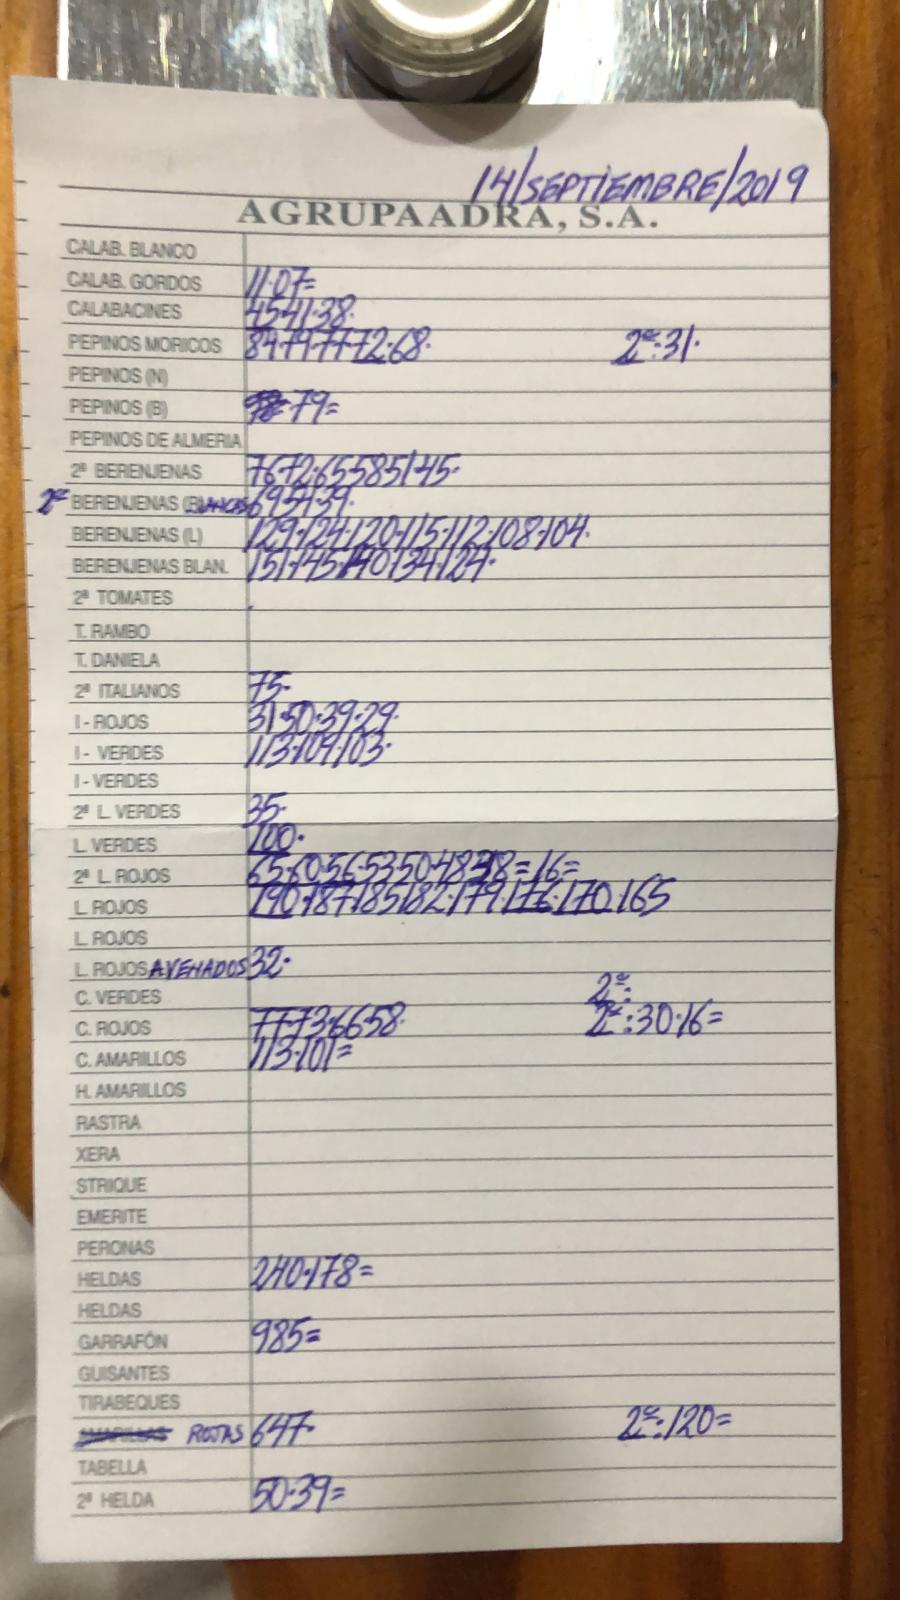 14/SEPTIEMBRE/2019
AGRUPAADRA, S.A.
CALAB. BLANCO
CALAB. GORDOS 11·07=
CALABACINES 4541·38·
PEPINOS MORICOS 84·79·7772·68· 2ª:31·
PEPINOS (N)
PEPINOS (B) 79=
PEPINOS DE ALMERIA
2ª BERENJENAS 7672·65585145·
2ª BERENJENAS (BLANCAS 6951·39·
BERENJENAS (L) 129·124·120·115·112·108·104·
BERENJENAS BLAN. 151·145·140·134·124·
2ª TOMATES
T. RAMBO
T. DANIELA
2ª ITALIANOS 75·
I - ROJOS 31·50·39·29·
I - VERDES 113·109·103·
I - VERDES
2ª L. VERDES 35·
L. VERDES 100·
2ª L. ROJOS 65·60·56·5350·4838=16=
L. ROJOS 190·187·185182·179·176·170·165
L. ROJOS
L. ROJOS AVENADOS 32·
C. VERDES 2ª:
C. ROJOS 77·73·6658· 2ª:30·16=
C. AMARILLOS 113·101=
H. AMARILLOS
RASTRA
XERA
STRIQUE
EMERITE
PERONAS
HELDAS 240·178=
HELDAS
GARRAFÓN 985=
GUISANTES
TIRABEQUES
AMARILLAS ROJAS 647· 2ª:120=
TABELLA
2ª HELDA 50·39=